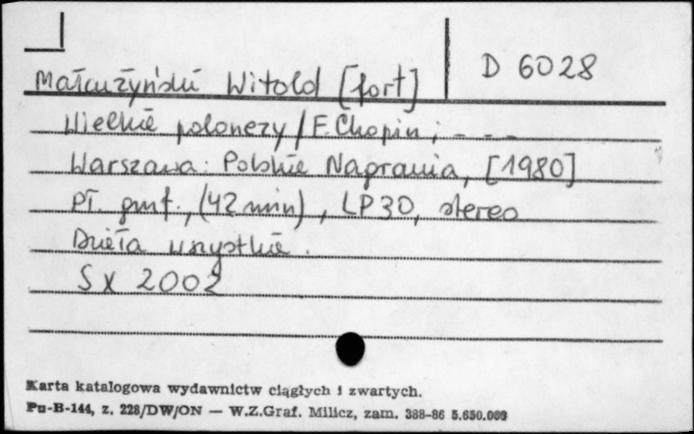 D 6028
Małcużyński Witold [fort]
Wielkie polonezy / F. Chopin ; - - -
Warszawa : Polskie Nagrania, [1980]
Pł. gmf., (42 min), LP 30, stereo
Dzieła wszystkie.
SX 2002
Karta katalogowa wydawnictw ciągłych i zwartych.
Pu-B-144, z. 228/DW/ON — W.Z.Graf. Milicz, zam. 388-86 5.650.000